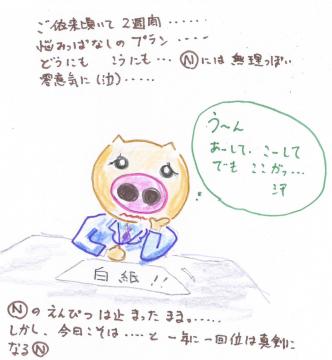 ご依来頃いて2週間......
悩みっぱなしのプラン.....
どうにも こうにも... Ⓝには無理っぽい
雰意気に(泣).....
う〜ん
あーして、こーして
でも ここがっ...
汗
白紙!!
Ⓝのえんぴつは止まったまま。.....
しかし、今日こそは....と一年に一回位は真剣に
なるⓃ